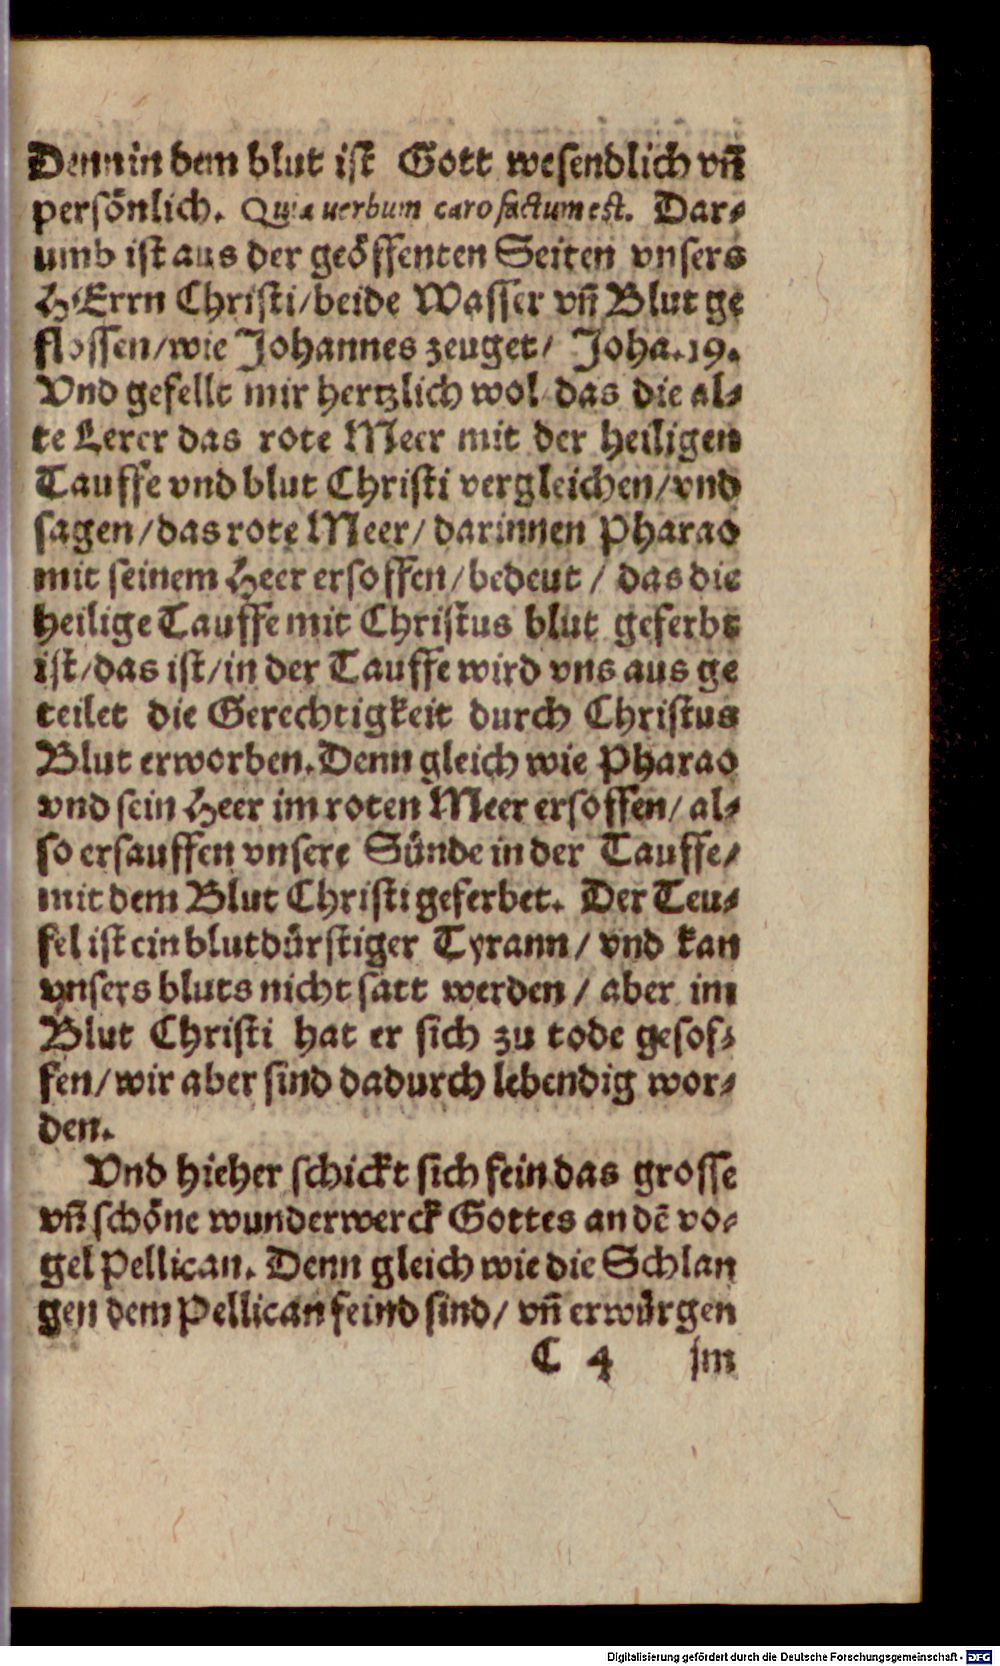 Denn in dem blut ist Gott wesendlich vn̄
persönlich. Quia uerbum caro factum est. Dar⸗
umb ist aus der geöffenten Seiten vnsers
HErrn Christi/beide Wasser vn̄ Blut ge
flossen/wie Johannes zeuget/ Joha.19.
Vnd gefellt mir hertzlich wol das die al⸗
te Lerer das rote Meer mit der heiligen
Tauffe vnd blut Christi vergleichen/vnd
sagen/das rote Meer/darinnen Pharao
mit seinem Heer ersoffen/bedeut/ das die
heilige Tauffe mit Christus blut geferbt
ist/das ist/in der Tauffe wird vns aus ge
teilet die Gerechtigkeit durch Christus
Blut erworben.Denn gleich wie Pharao
vnd sein Heer im roten Meer ersoffen/al⸗
so ersauffen vnsere Sünde in der Tauffe/
mit dem Blut Christi geferbet. Der Teu⸗
fel ist ein blutdürstiger Tyrann/ vnd kan
vnsers bluts nicht satt werden/ aber im
Blut Christi hat er sich zu tode gesof⸗
fen/wir aber sind dadurch lebendig wor⸗
den.
Vnd hieher schickt sich fein das grosse
vn̄ schöne wunderwerck Gottes an dē vo⸗
gel Pellican. Denn gleich wie die Schlan
gen dem Pellican feind sind/ vn̄ erwürgen
C 4 jm
Digitalisierung gefördert durch die Deutsche Forschungsgemeinschaft - DFG